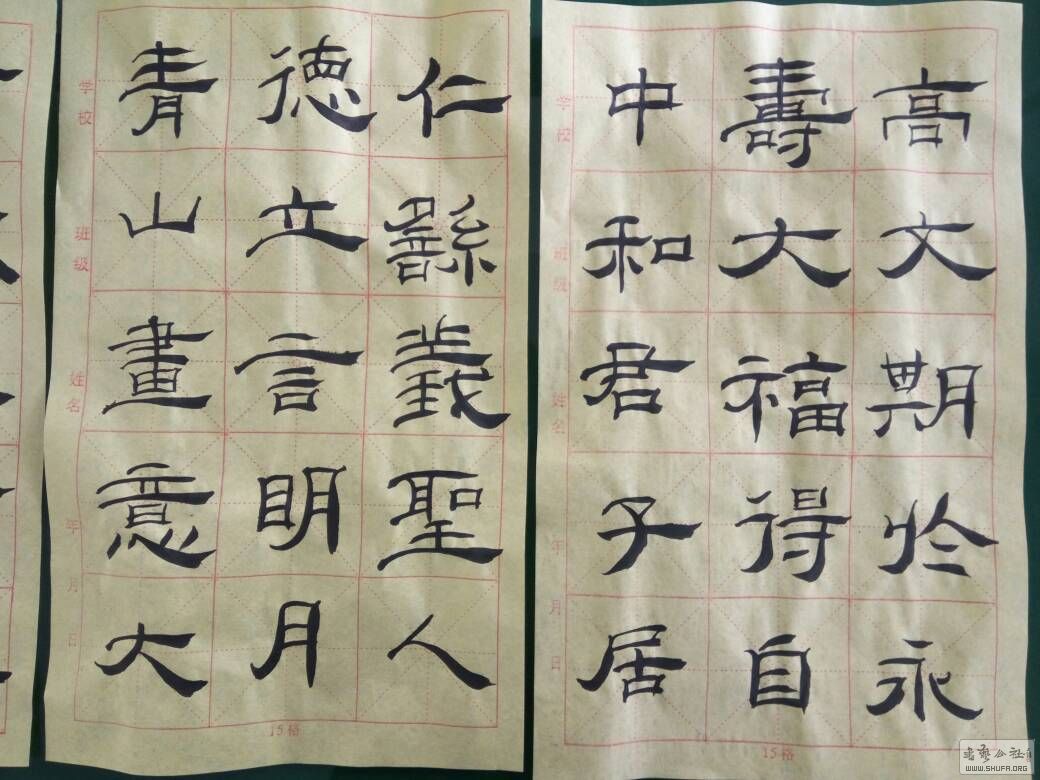 高文期於永
壽大福得自
中和君子居
学校 班级 姓名 年 月 日
15格
仁繇義聖人
德立言明月
青山畫意大
学校 班级 姓名 年 月 日
15格
書藝公社
WWW.SHUFA.ORG